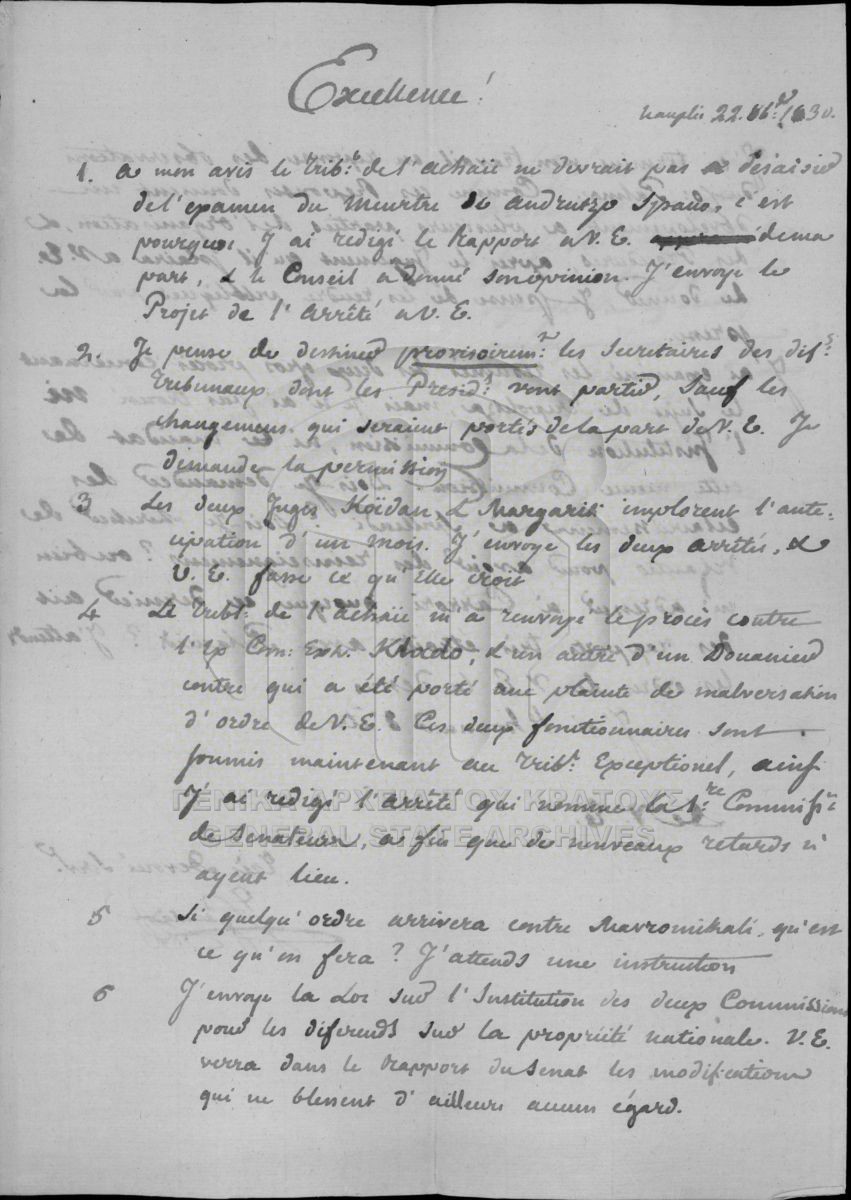 Excellence!
Nauplie 22. 8b.re 1830.
1. A mon avis le Trib.l de l'achaïe ne devrait pas se desaisir
de l'examen du meurtre de Andrutzo , c'est
pourquoi J'ai redigé le Rapport a V. E. de ma
part, & le Conseil a donné son opinion. J'envoye le
Projet de l'Arrêté a V. E.
2. Je pense de destiner provisoirem.t les Secretaires des dif.s
Tribunaux dont les Presid.s vont partir, Sauf les
changemens qui seraient portés de la part de V. E. Je
demande la permission
3 Les deux Juges Kaïdan, & Margariti implorent l'ante-
cipation d'un mois. J'envoye les deux arrêtés, &
V. E. fasse ce qu'elle croit
4 Le Trib.l de l'Achaïe m'a renvoyé le procès contre
l'Ex Com: Extr. Klado, & un autre d'un Douanier
contre qui a été porté une plainte de malversation
d'ordre de V. E. Ces deux fonctionnaires sont
soumis maintenant au Trib.l Exceptionel, ainsi
J'ai redigé l'arrêté qui nomme la 1.re Commiss.n
de Senateurs, a fin que de nouveaux retards n'
ayent lieu.
5 Si quelqu'ordre arrivera contre Mavromikali, qu'est
ce qu'on fera? J'attends une instruction
6 J'envoye la Loi sur l'Institution des deux Commissions
pour les diferends sur la propriété nationale. V. E.
verra dans le Rapport du Senat les modifications
qui ne blessent d'ailleurs aucun égard.
ΓΕΝΙΚΑ ΑΡΧΕΙΑ ΤΟΥ ΚΡΑΤΟΥΣ
GENERAL STATE ARCHIVES